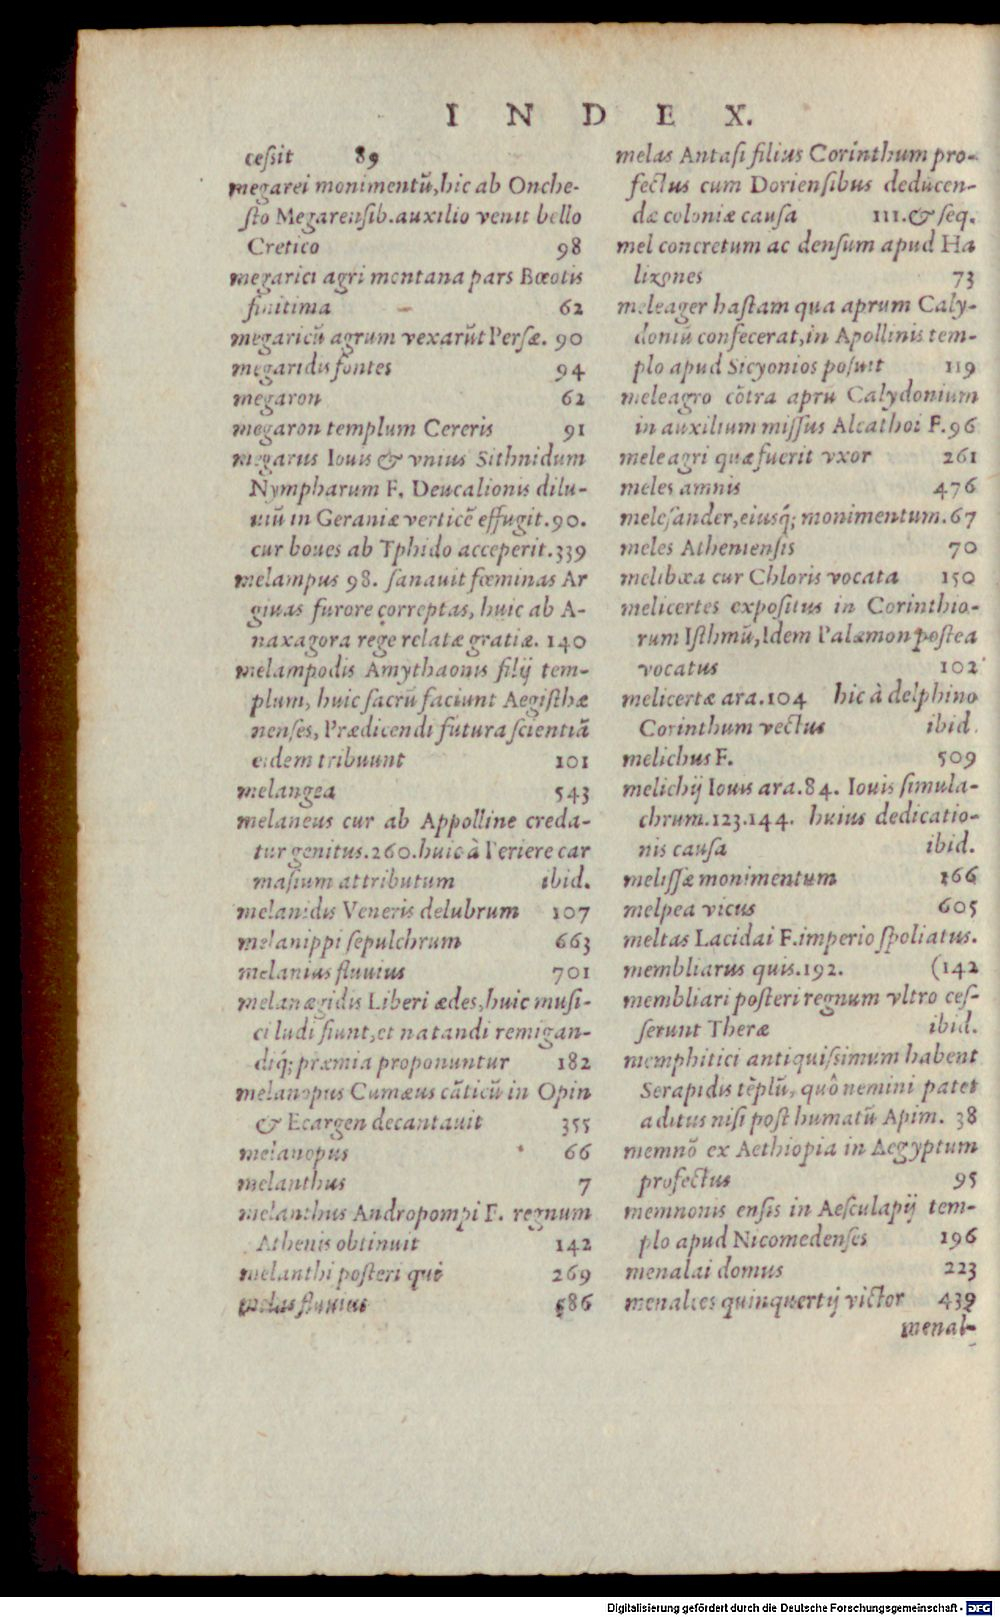 INDEX.
cessit 89
megarei monimentũ, hic ab Onche-
sto Megarensib. auxilio venit bello
Cretico 98
megarici agri montana pars Bœotis
finitima 62
megaricũ agrum vexarũt Persæ. 90
megaridis fontes 94
megaron 62
megaron templum Cereris 91
megarus Iouis & vnius Sithnidum
Nympharum F. Deucalionis dilu-
uiũ in Geraniæ verticẽ effugit. 90.
cur boues ab Iphido acceperit. 339
melampus 98. sanauit fœminas Ar
giuas furore correptas, huic ab A-
naxagora rege relatæ gratiæ. 140
melampodis Amythaonis filij tem-
plum, huic sacrũ faciunt Aegisthæ
nenses, Prædicendi futura scientiã
eidem tribuunt 101
melangea 543
melaneus cur ab Appolline creda-
tur genitus. 260. huic à Periere car
masium attributum ibid.
melanidis Veneris delubrum 107
melanippi sepulchrum 663
melanius fluuius 701
melanægidis Liberi ædes, huic musi-
ci ludi fiunt, et natandi remigan-
diq́; præmia proponuntur 182
melanopus Cumæus cãticũ in Opin
& Ecargen decantauit 355
melanopus 66
melanthus 7
melanthus Andropompi F. regnum
Athenis obtinuit 142
melanthi posteri qui 269
melas fluuius 686
melas Antasi filius Corinthum pro-
fectus cum Doriensibus deducen-
dæ coloniæ causa 111. & seq.
mel concretum ac densum apud Ha
lizones 73
meleager hastam qua aprum Caly-
doniũ confecerat, in Apollinis tem-
plo apud Sicyonios posuit 119
meleagro cõtra aprũ Calydonium
in auxilium missus Alcathoi F. 96
meleagri quæ fuerit vxor 261
meles amnis 476
melesander, eiusq́; monimentum. 67
meles Atheniensis 70
melibœa cur Chloris vocata 150
melicertes expositus in Corinthio-
rum Isthmũ, Idem Palæmon postea
vocatus 102
melicertæ ara. 104 hic à delphino
Corinthum vectus ibid.
melichus F. 509
melichij Iouis ara. 84. Iouis simula-
chrum. 123. 144. huius dedicatio-
nis causa ibid.
melissæ monimentum 166
melpea vicus 605
meltas Lacidai F. imperio spoliatus.
membliarus quis. 192. (142
membliari posteri regnum vltro ces-
serunt Theræ ibid.
memphitici antiquissimum habent
Serapidis tẽplũ, quô nemini patet
aditus nisi post humatũ Apim. 38
memnõ ex Aethiopia in Aegyptum
profectus 95
memnonis ensis in Aesculapij tem-
plo apud Nicomedenses 196
menalai domus 223
menalces quinquertij victor 439
menal-
Digitalisierung gefördert durch die Deutsche Forschungsgemeinschaft - DFG